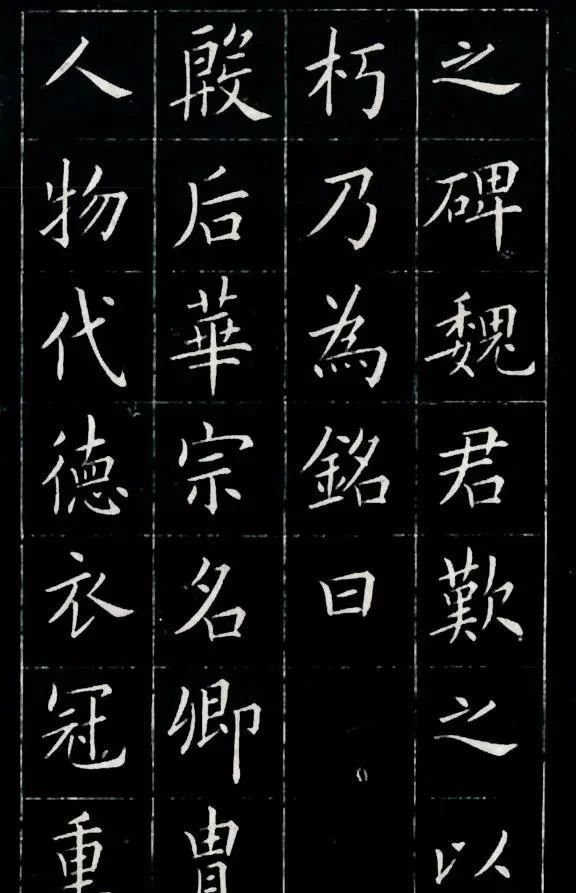 之碑魏君歎之以
朽乃為銘曰
殷后華宗名卿胄
人物代德衣冠重